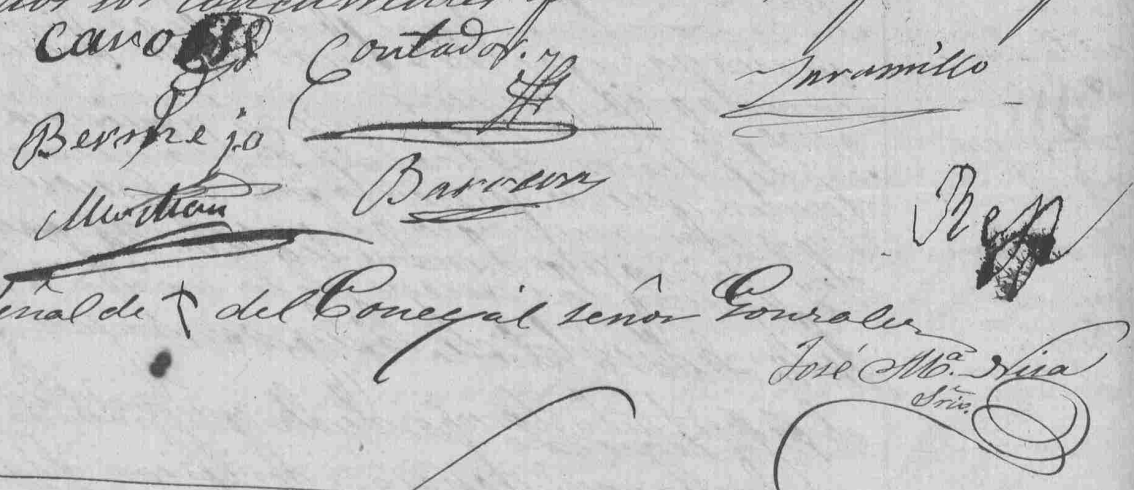 Caro Contador Jaramillo
Bermejo
Barrera
Rey
señal de † del Concejal señor Gonzalez
José Mª Nisa
Srio.